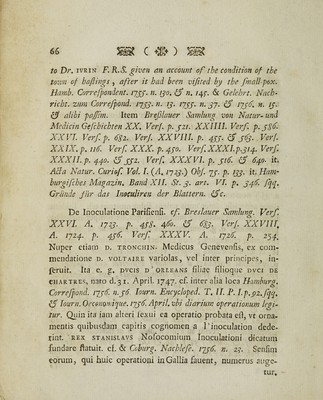 66 ( )
to Dr. IVRIN F.R.S. given an account of the condition of the
town of hastings, after it had been visited by the small-pox.
Hamb. Correspondent. 1755. n. 130. & n. 145. & Gelehrt. Nach-
richt. zum Correspond. 1753. n. 13. 1755. n. 37. & 1756. n. 15.
& alibi passim. Item Breslauer Samlung von Natur- und
Medicin Geschichten XX. Vers. p. 521. XXIIII. Vers. p. 586.
XXVI. Vers. p. 682. Vers. XXVIII. p. 455. & 563. Vers.
XXIX. p. 116. Vers. XXX. p. 450. Vers. XXXI. p. 314. Vers.
XXXII. p. 440. & 552. Vers. XXXVI. p. 516. & 640. it.
Acta Natur. Curios. Vol. I. (A. 1723.) Obs. 75. p. 133. it. Ham-
burgisches Magazin. Band XII. St. 3. art. VI. p. 346. sqq.
Gründe für das Inoculiren der Blattern. &c.
De Inoculatione Parisiensi. cf. Breslauer Samlung. Vers.
XXVI. A. 1723. p. 458. 460. & 683. Vers. XXVIII.
A. 1724. p. 456. Vers. XXXV. A. 1726. p. 254.
Nuper etiam D. TRONCHIN. Medicus Genevensis, ex com-
mendatione D. VOLTAIRE variolas, vel inter principes, in-
seruit. Ita e. g. DVCIS D'ORLEANS filiae filioque DVCI DE
CHARTRES, nato d. 31. April. 1747. cf. inter alia loca Hamburg.
Correspond. 1756. n. 56. Iourn. Encycloped. T. II. P. I. p. 92. sqq.
& Iourn. Oeconomique. 1756. April. vbi diarium operationum legi-
tur. Quin ita iam alteri sexui ea operatio probata est, vt orna-
mentis quibusdam capitis cognomen a l'inoculation dede-
rint. REX STANISLAVS Nosocomium Inoculationi dicatum
fundare statuit. cf. & Coburg. Nachlese. 1756. n. 23. Sensim
eorum, qui huic operationi in Gallia fauent, numerus auge-
tur,